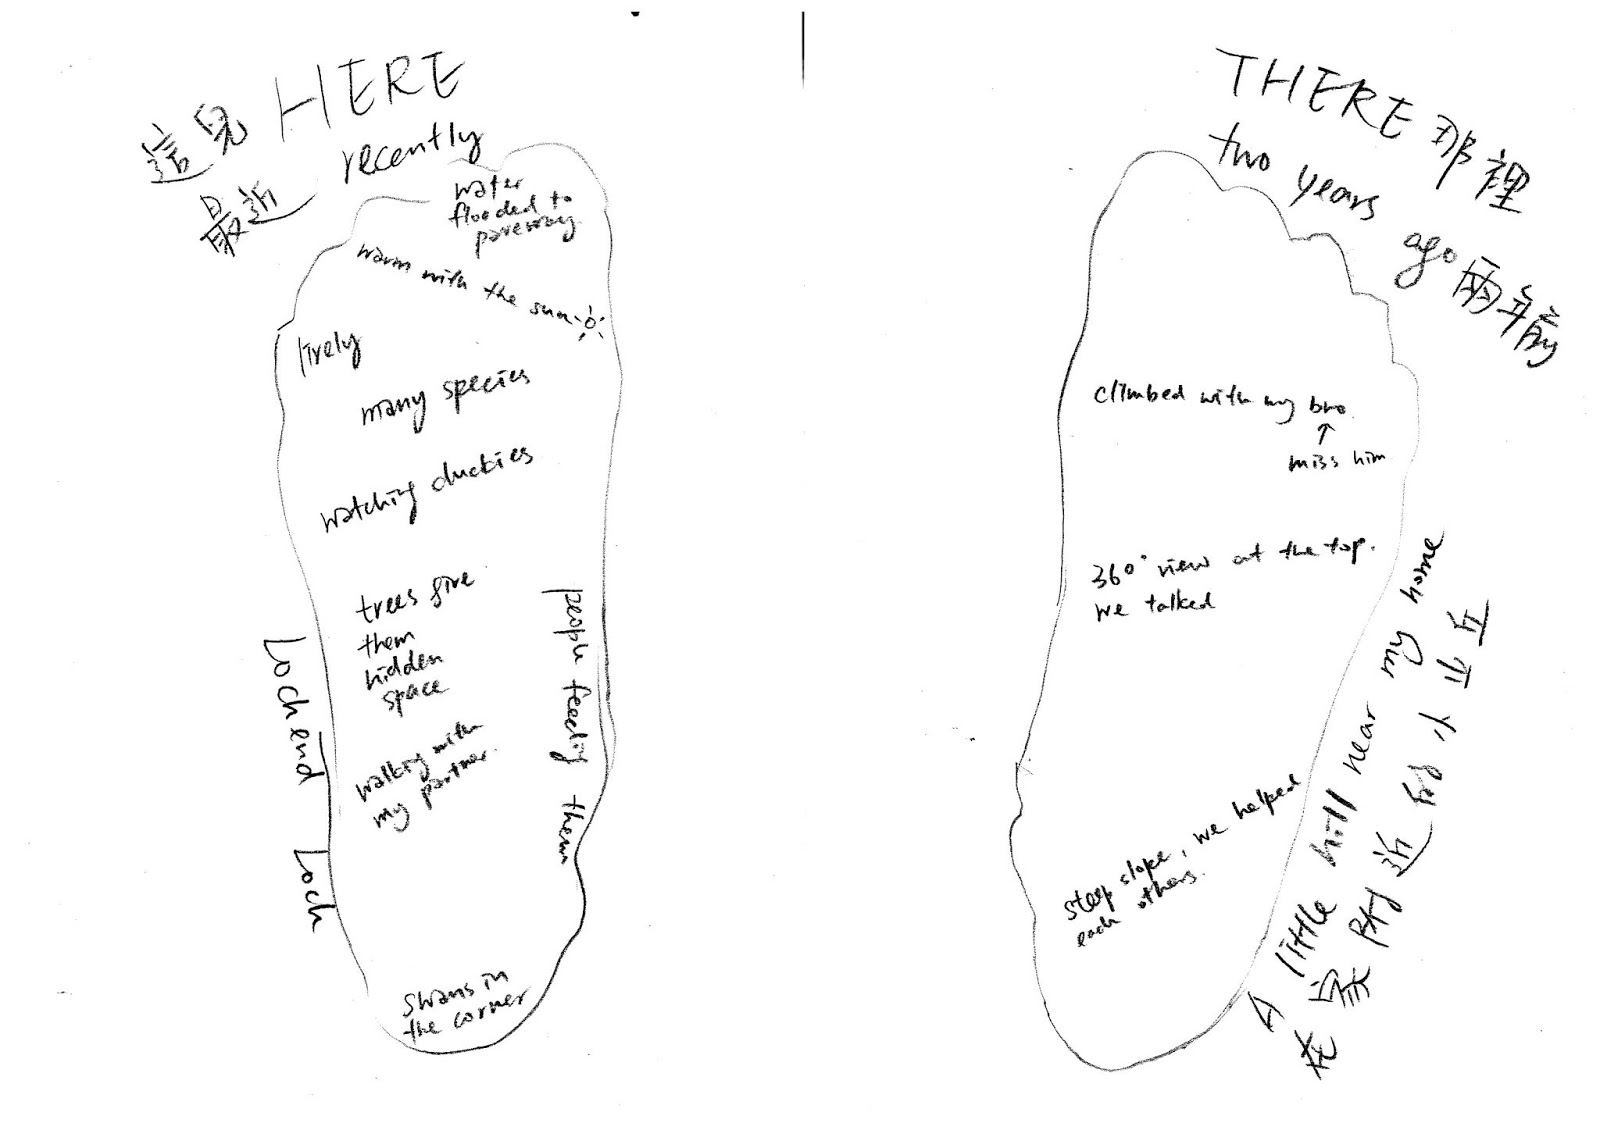 這兒 HERE
最近 recently
water
flooded to
pareway
warm with the sun
lively
many species
watching duckies
trees give
them
hidden
space
people feeding them
walking with
my partner.
Lochend Loch
swans in
the corner
THERE 那裡
two years ago 兩年前
climbed with my bro
↑
miss him
360° view at the top.
we talked
steep slope, we helped
each others.
A little hill near my home
在家附近的小